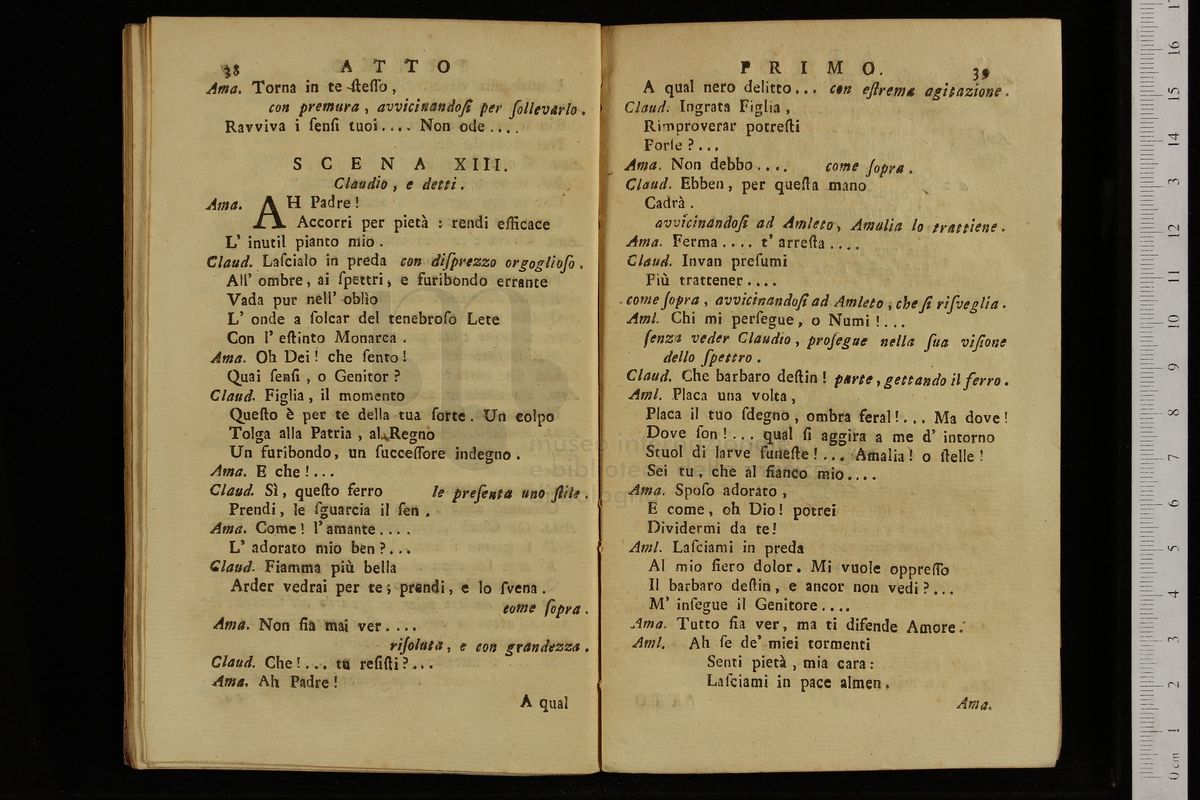 38 ATTO
Ama. Torna in te ſteſſo,
con premura, avvicinandoſi per ſollevarlo.
Ravviva i ſenſi tuoi.... Non ode....
SCENA XIII.
Claudio, e detti.
Ama. AH Padre!
Accorri per pietà: rendi efficace
L' inutil pianto mio.
Claud. Laſcialo in preda con diſprezzo orgoglioſo.
All' ombre, ai ſpettri, e furibondo errante
Vada pur nell' oblìo
L' onde a ſolcar del tenebroſo Lete
Con l' eſtinto Monarca.
Ama. Oh Dei! che ſento!
Quai ſenſi, o Genitor?
Claud. Figlia, il momento
Queſto è per te della tua ſorte. Un colpo
Tolga alla Patria, al Regno
Un furibondo, un ſucceſſore indegno.
Ama. E che!...
Claud. Sì, queſto ferro le preſenta uno ſtile.
Prendi, le ſguarcia il ſen.
Ama. Come! l'amante....
L' adorato mio ben?...
Claud. Fiamma più bella
Arder vedrai per te; prendi, e lo ſvena.
come ſopra.
Ama. Non fia mai ver....
riſoluta, e con grandezza.
Claud. Che!... tu reſiſti?...
Ama. Ah Padre!
A qual
PRIMO. 39
A qual nero delitto... con eſtrema agitazione.
Claud. Ingrata Figlia,
Rimproverar potreſti
Forſe?...
Ama. Non debbo.... come ſopra.
Claud. Ebben, per queſta mano
Cadrà.
avvicinandoſi ad Amleto, Amalia lo trattiene.
Ama. Ferma.... t' arreſta....
Claud. Invan preſumi
Più trattener....
come ſopra, avvicinandoſi ad Amleto, che ſi riſveglia.
Aml. Chi mi perſegue, o Numi!...
ſenza veder Claudio, proſegue nella ſua viſione
dello ſpettro.
Claud. Che barbaro deſtin! parte, gettando il ferro.
Aml. Placa una volta,
Placa il tuo ſdegno, ombra feral!... Ma dove!
Dove ſon!... qual ſi aggira a me d' intorno
Stuol di larve funeſte!... Amalia! o ſtelle!
Sei tu, che al fianco mio....
Ama. Spoſo adorato,
E come, oh Dio! potrei
Dividermi da te!
Aml. Laſciami in preda
Al mio fiero dolor. Mi vuole oppreſſo
Il barbaro deſtin, e ancor non vedi?...
M' inſegue il Genitore....
Ama. Tutto fia ver, ma ti difende Amore.
Aml. Ah ſe de' miei tormenti
Senti pietà, mia cara:
Laſciami in pace almen.
Ama.